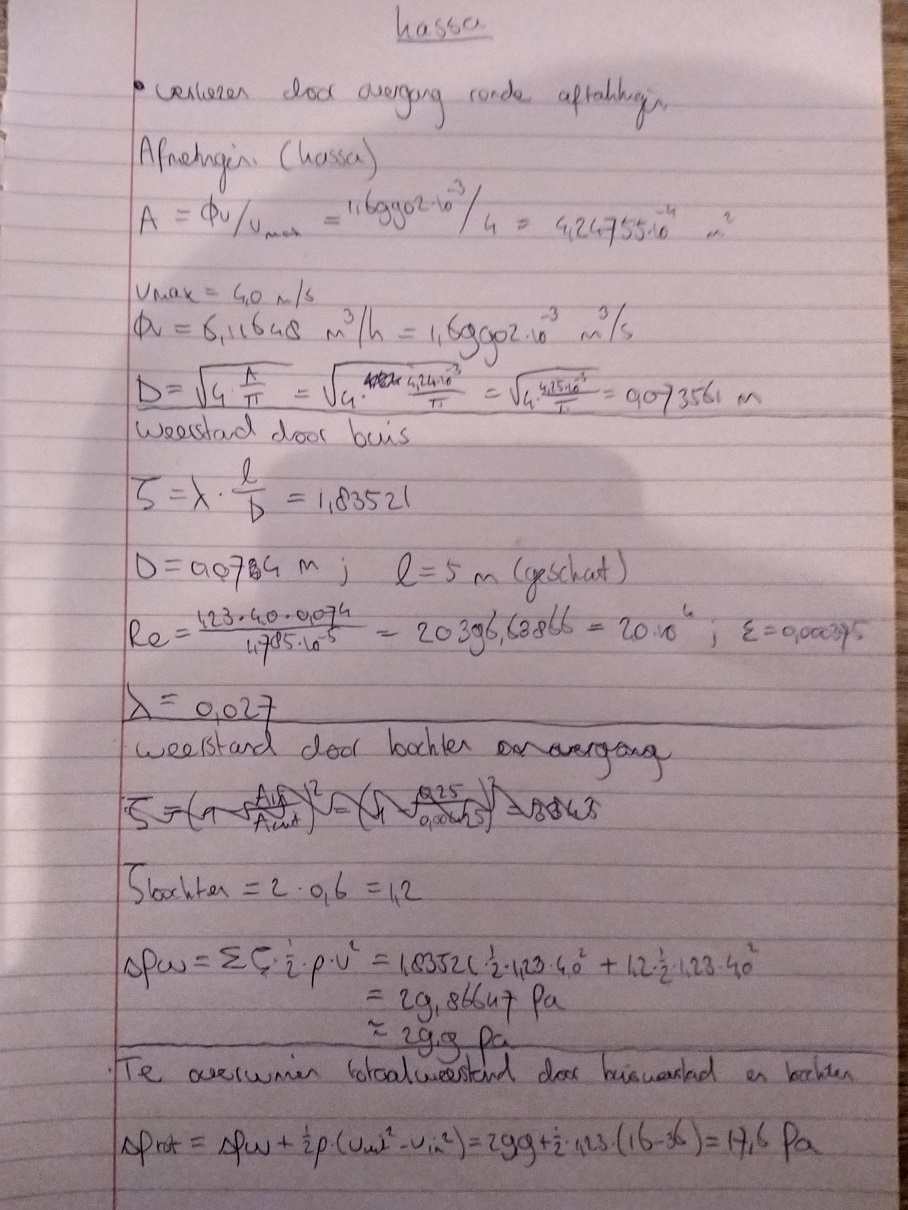 kassa
• verliezen door overgang ronde aftakkingen
Afmetingen (kassa)
A = ϕv/vmax = 1,69902·10⁻³/4 = 4,24755·10⁻⁴ m²
Vmax = 4,0 m/s
ϕv = 6,11648 m³/h = 1,69902·10⁻³ m³/s
D = √(4·A/π) = √(4·4,24·10⁻³/π) = √(4·4,25·10⁻³/π) = 0,073561 m
weerstand door buis
ζ = λ · l/D = 1,83521
D = 0,0734 m ; l = 5 m (geschat)
Re = 1,23·4,0·0,074/1,785·10⁻⁵ = 20396,63866 = 20·10⁴ ; ε = 0,000395
λ = 0,027
weerstand door bochten en overgang
ζbochten = 2 · 0,6 = 1,2
Δpw = Σζ·½·ρ·v² = 1,83521·½·1,23·4,0² + 1,2·½·1,23·4,0²
= 29,86647 Pa
≈ 29,9 Pa
Te overwinnen totaalweerstand door buisweerstand en bochten
Δptot = Δpw + ½ρ·(vuit² - vin²) = 29,9 + ½·1,23·(16-36) = 17,6 Pa